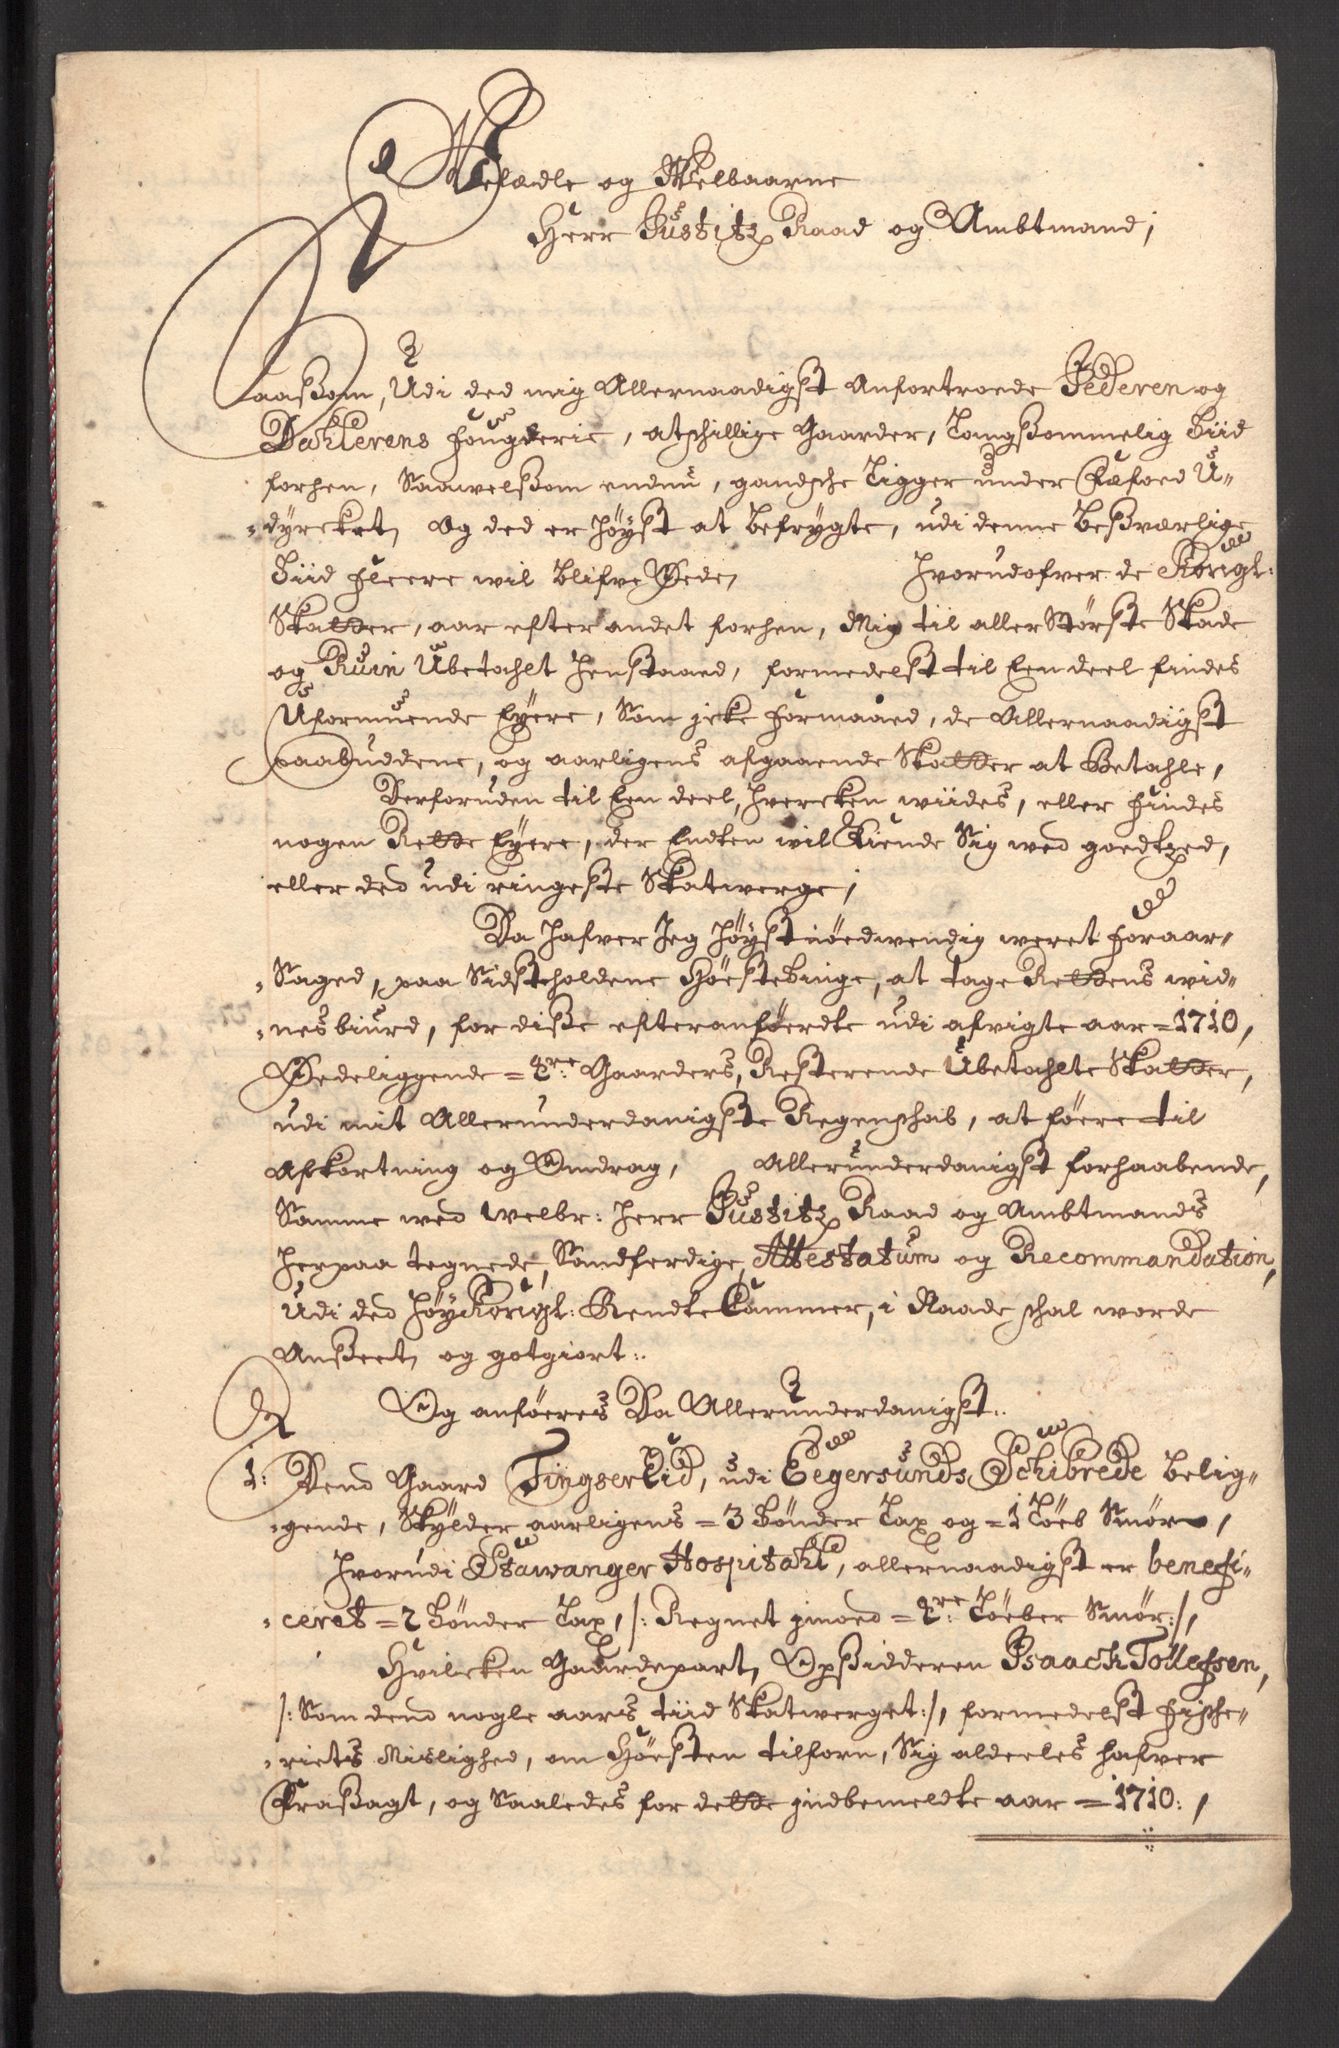 Velædle og Welbaarne
Herr Justitz Raad og Ambtmand,
Saasom, Udi ded mig Allernaadigst Anfortroede Jederen og
Dahlerens fougderie, atschillige Gaarder, langsommelig Tiid
forhen, Saawelsom endnu, gandsche Ligger under Fæfoed U-
-dyrcket, Og ded er Høyst at befrygte, udi denne besværlige
Tiid fleere wil blifve Øede, Hvorudofver de Kongl:
Skatter, aar efter andet forhen, Mig til aller Største Skade
og Ruin Ubetahlt Henstaaed, formedelst til Een deel findes
Uformuende Eyere, Som icke formaaed, de Allernaadigst
paabuddene, og aarligens afgaaende Skatter at Betahle,
Derforuden til Een deel, Hvercken wiides, eller findes
nogen Rette Eyere, der Endten wil Kiende Sig wed goedtzed,
eller ded udi ringeste Skatwerge,
Da Hafver Jeg Høyst nöedwendig weret foraar-
-Saged, paa Sidstholdene Höestetinge, at tage Rettens wid-
-nesbiurd, for disse efteranföerdte udi afvigte aar = 1710,
Øedeliggende = 2re: Gaarders, Resterende Ubetahlte Skatter,
udi mit Allerunderdanigste Regenschab, at föere til
Afkortning og Omdrag, Allerunderdanigst forhaabende,
Samme wed Welbr: Herr Justitz Raad og Ambtmands
Herpaa tegnede, Sandferdige, Attestatum og Recommandation,
Udi ded HøyKongl: Rendte Cammer, i Naade schal worde
Anseet, og gotgiort:.
Og anföeres Da Allerunderdanigst:.
1: Dend Gaard Tingserlid, udi Eegersunds Schibrede belig-
-gende, Skylder aarligens = 3 Tönder Tax og = 1 Löeb Smör,
Hvorudi Stawanger Hospitahl, allernaadigst er benefi-
-ceret = 2 Tönder Tax, /: Regnet imoed = 2re: Löeber Smör:/,
Hvilcken Gaardepart, Opsidderen Isaach Tollefsen,
/: Som dend nogle aars tiid Skatwerget:/, formedelst fische-
-riets Mislighed, om Höesten tilforn, Sig alldeeles hafver
Frasagt, og Saaledes for dette indbemeldte aar = 1710:,